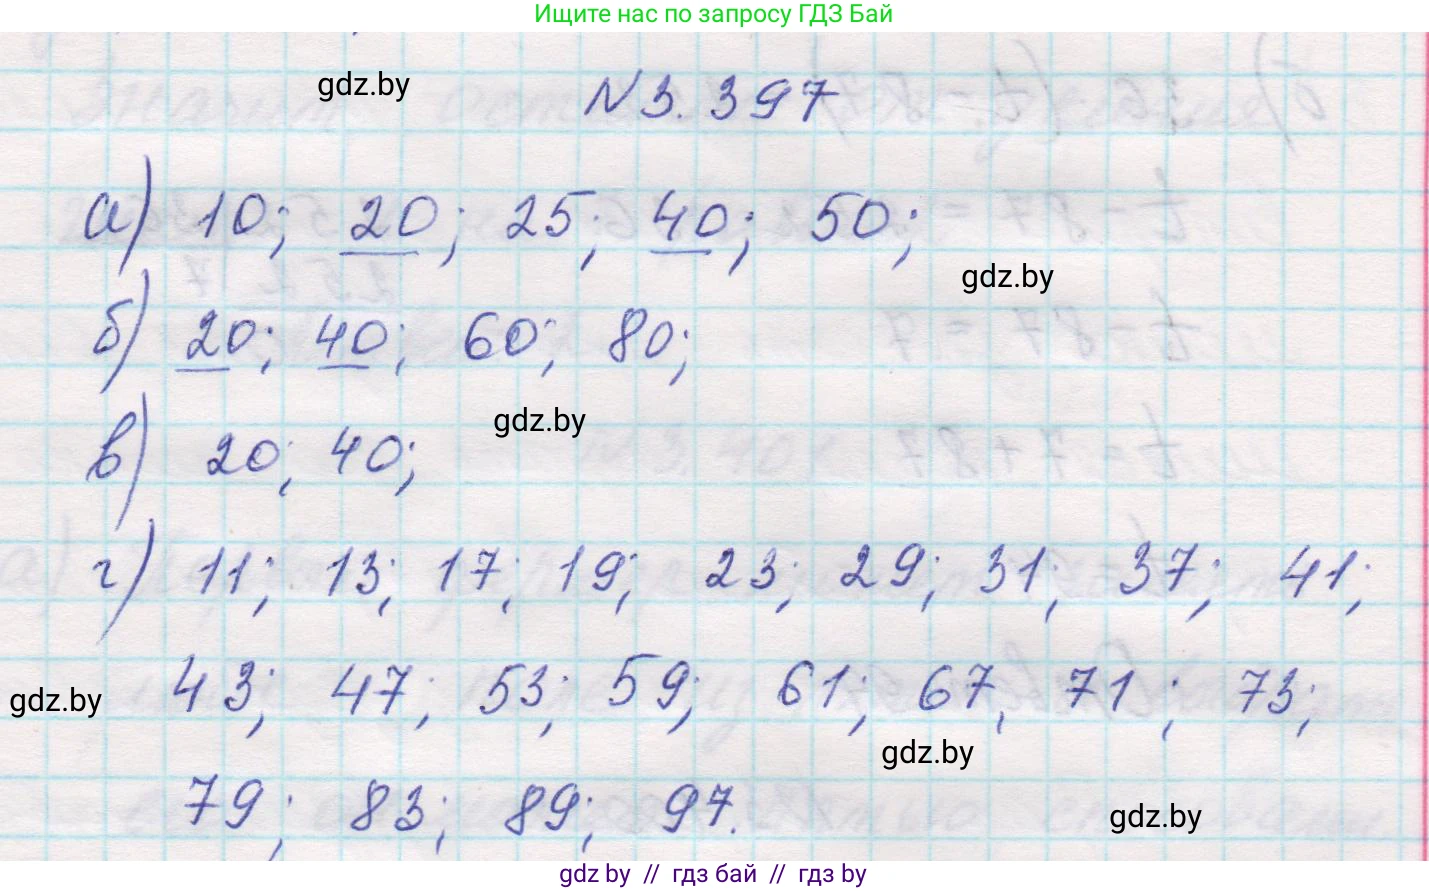 Ищите нас по запросу ГДЗ Бай
gdz.by
N 3.397
а) 10; 20; 25; 40; 50;
gdz.by
б) 20; 40; 60; 80;
gdz.by
в) 20; 40;
г) 11; 13; 17; 19; 23; 29; 31; 37; 41;
43; 47; 53; 59; 61; 67, 71; 73;
gdz.by
gdz.by
79; 83; 89; 97.
gdz.by
gdz.by // гдз бай // гдз by